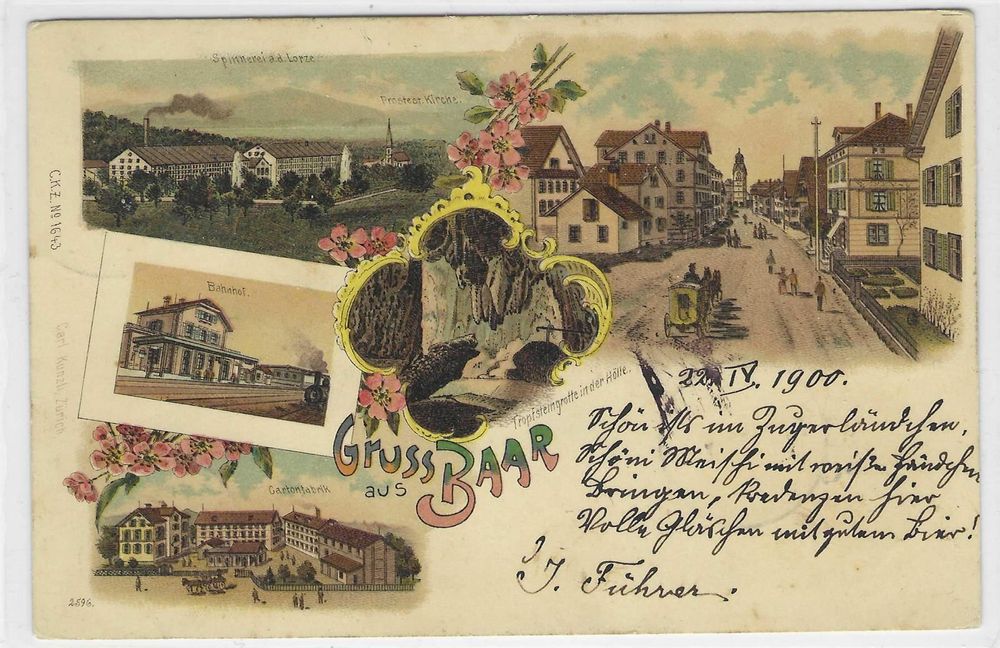 Spinnerei a.d. Lorze
Protest. Kirche.
C.K.Z. No 1643
Bahnhof.
Carl Künzli, Zürich
Tropfsteingrotte in der Hölle.
GRUSS
aus
BAAR
Cartonfabrik
2596.
22. IV. 1900.
Schön ists im Zugerländchen,
Schöni Meitschi mit weiße Händchen
Bringen, kredenzen hier
Volle Gläschen mit gutem Bier!
J. Führer.